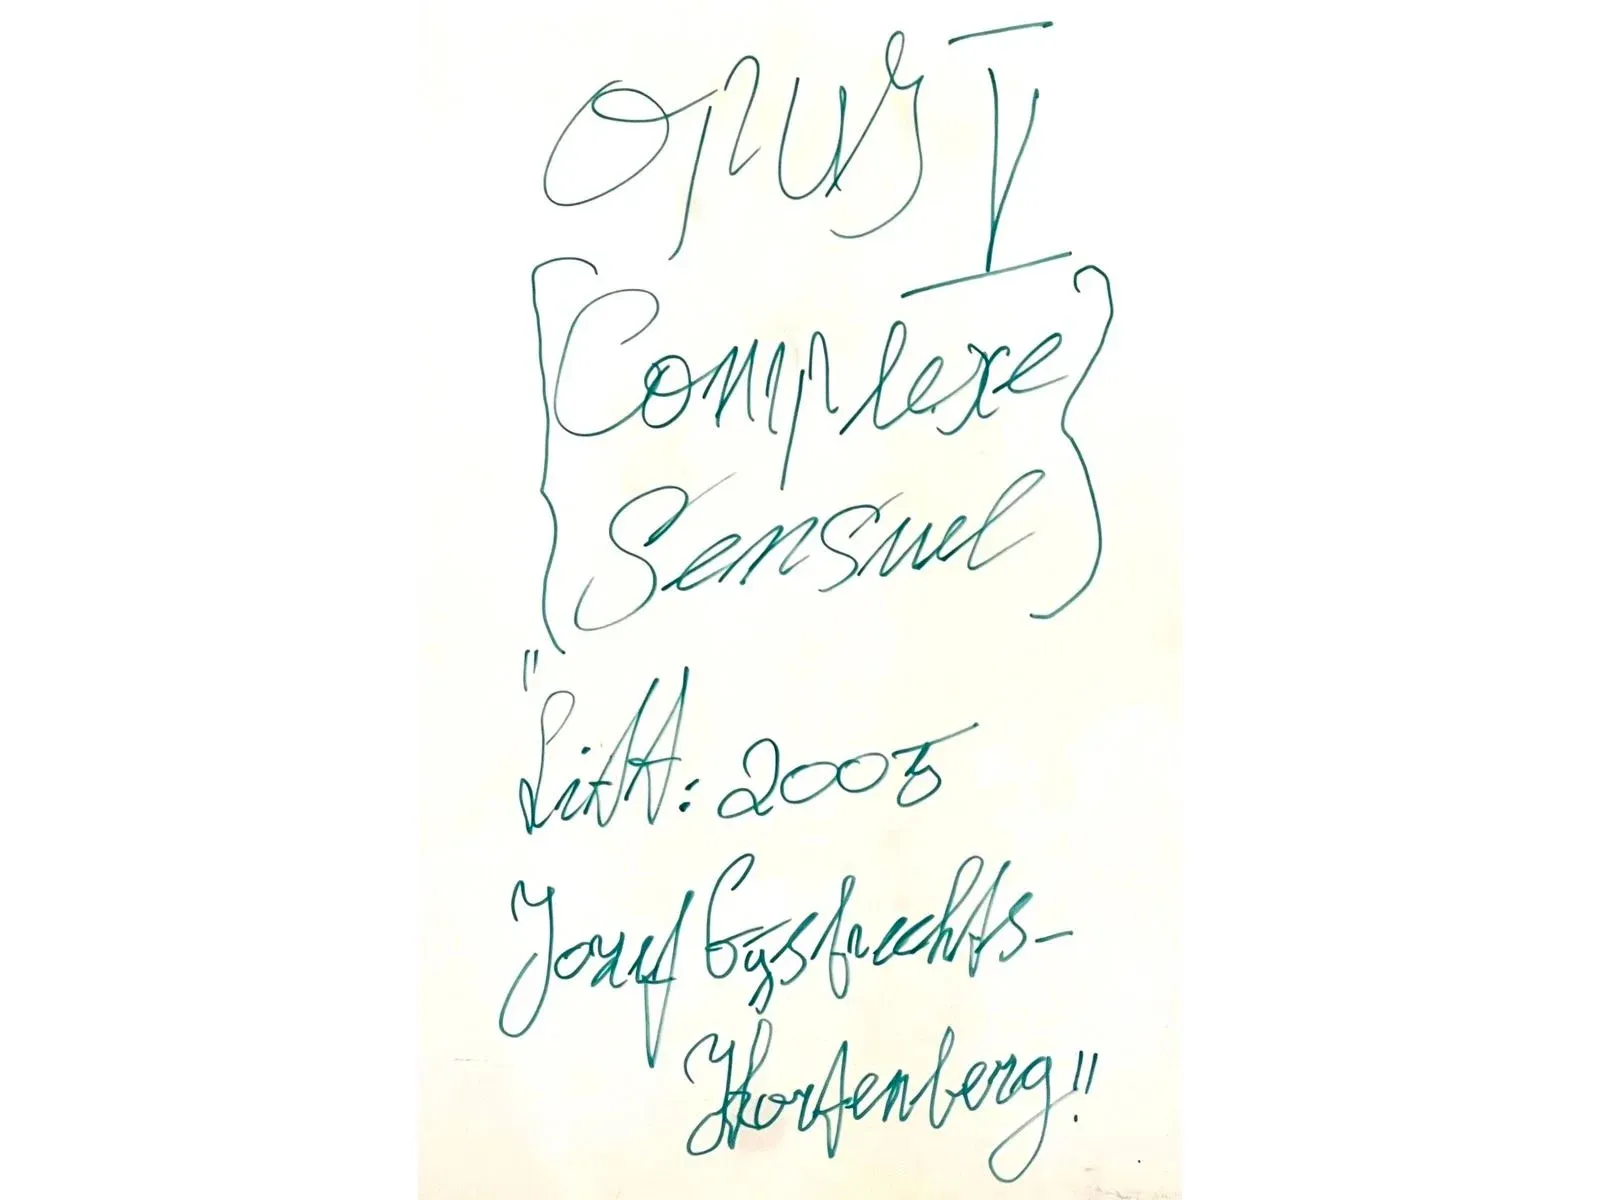 Opus V
{Complexe
Sensuel}
"Litt: 2005
Jozef Gysbrechts-
Kortenberg"